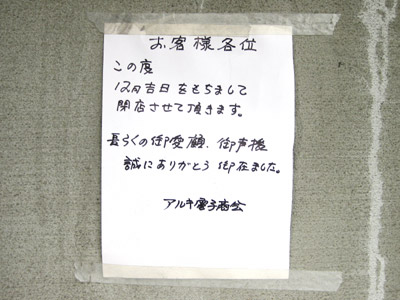 お客様各位
この度
12月吉日をもちまして
閉店させて頂きます。
長らくの御愛顧、御声援
誠にありがとう御在ました。
アルキ電子商会